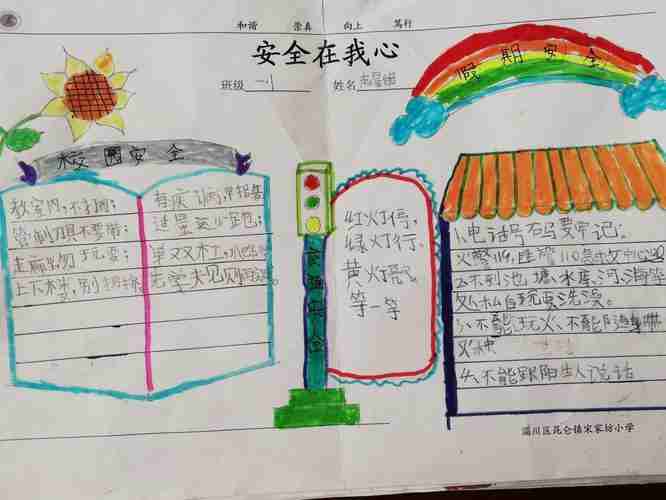 和谐 崇真 向上 笃行
安全在我心
班级 一.1 姓名
假期安全
校园安全
教室内,不打闹;
管制刀具不要带;
走廊里勿玩耍;
上下楼,别拥挤
有疾病,早报告
过量
单双杠,小心
红灯停,
绿灯行,
黄灯
等一等
交通安全
1.电话号码要牢记:
火警119,匪警110急救中心120
2.不到池塘、水库、河、海等
处私自玩耍洗澡。
3.不能玩火、不能
4.不能跟陌生人说话
淄川区昆仑镇宋家坊小学